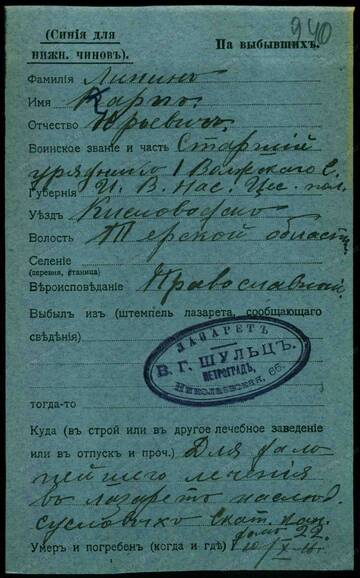 940
(Синія для нижн. чиновъ).
На выбывшихъ.
Фамилія Липинъ
Имя Карпъ
Отчество Юрьевичъ.
Воинское званіе и часть Старшій
урядникъ I Волжскаго Е.
Губернія И. В. Нас. Цес. пол.
Уѣздъ Кисловодско
Волость Терской области
Селеніе
(деревня, станица)
Вѣроисповѣданіе Православный
Выбылъ изъ (штемпель лазарета, сообщающаго
свѣдѣнія)
ЛАЗАРЕТЪ
В. Г. ШУЛЬЦЪ.
ПЕТРОГРАДЪ,
Николаевская, 66.
тогда-то
Куда (въ строй или въ другое лечебное заведеніе
или въ отпускъ и проч.) Для даль
нейшего лечения
въ лазаретъ наслѣд.
Сусловыхъ Екат. кан.
Умеръ и погребенъ (когда и гдѣ) домъ 22.
10/X